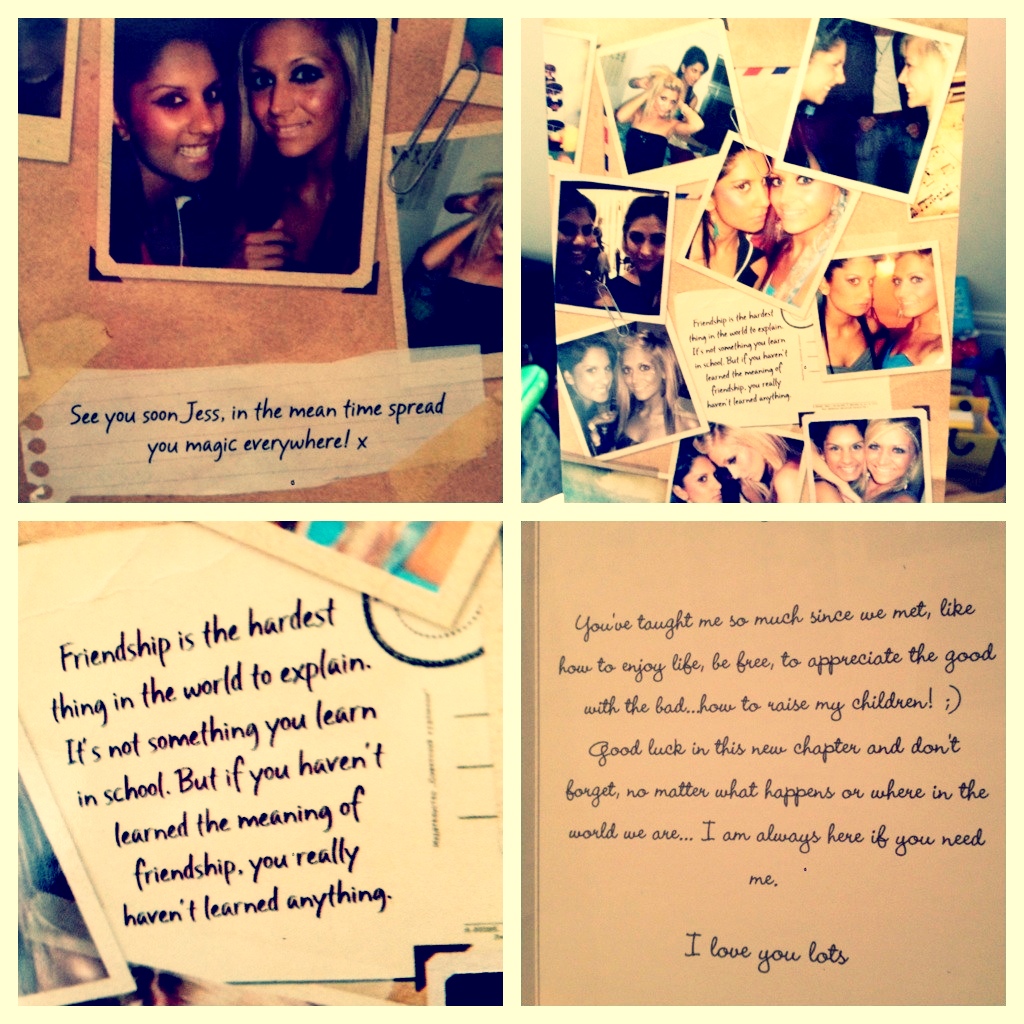 See you soon Jess, in the mean time spread
you magic everywhere! x
Friendship is the hardest
thing in the world to explain.
It's not something you learn
in school. But if you haven't
learned the meaning of
friendship, you really
haven't learned anything.
Friendship is the hardest
thing in the world to explain.
It's not something you learn
in school. But if you haven't
learned the meaning of
friendship, you really
haven't learned anything.
You've taught me so much since we met, like
how to enjoy life, be free, to appreciate the good
with the bad...how to raise my children! ;)
Good luck in this new chapter and don't
forget, no matter what happens or where in the
world we are... I am always here if you need
me.
I love you lots